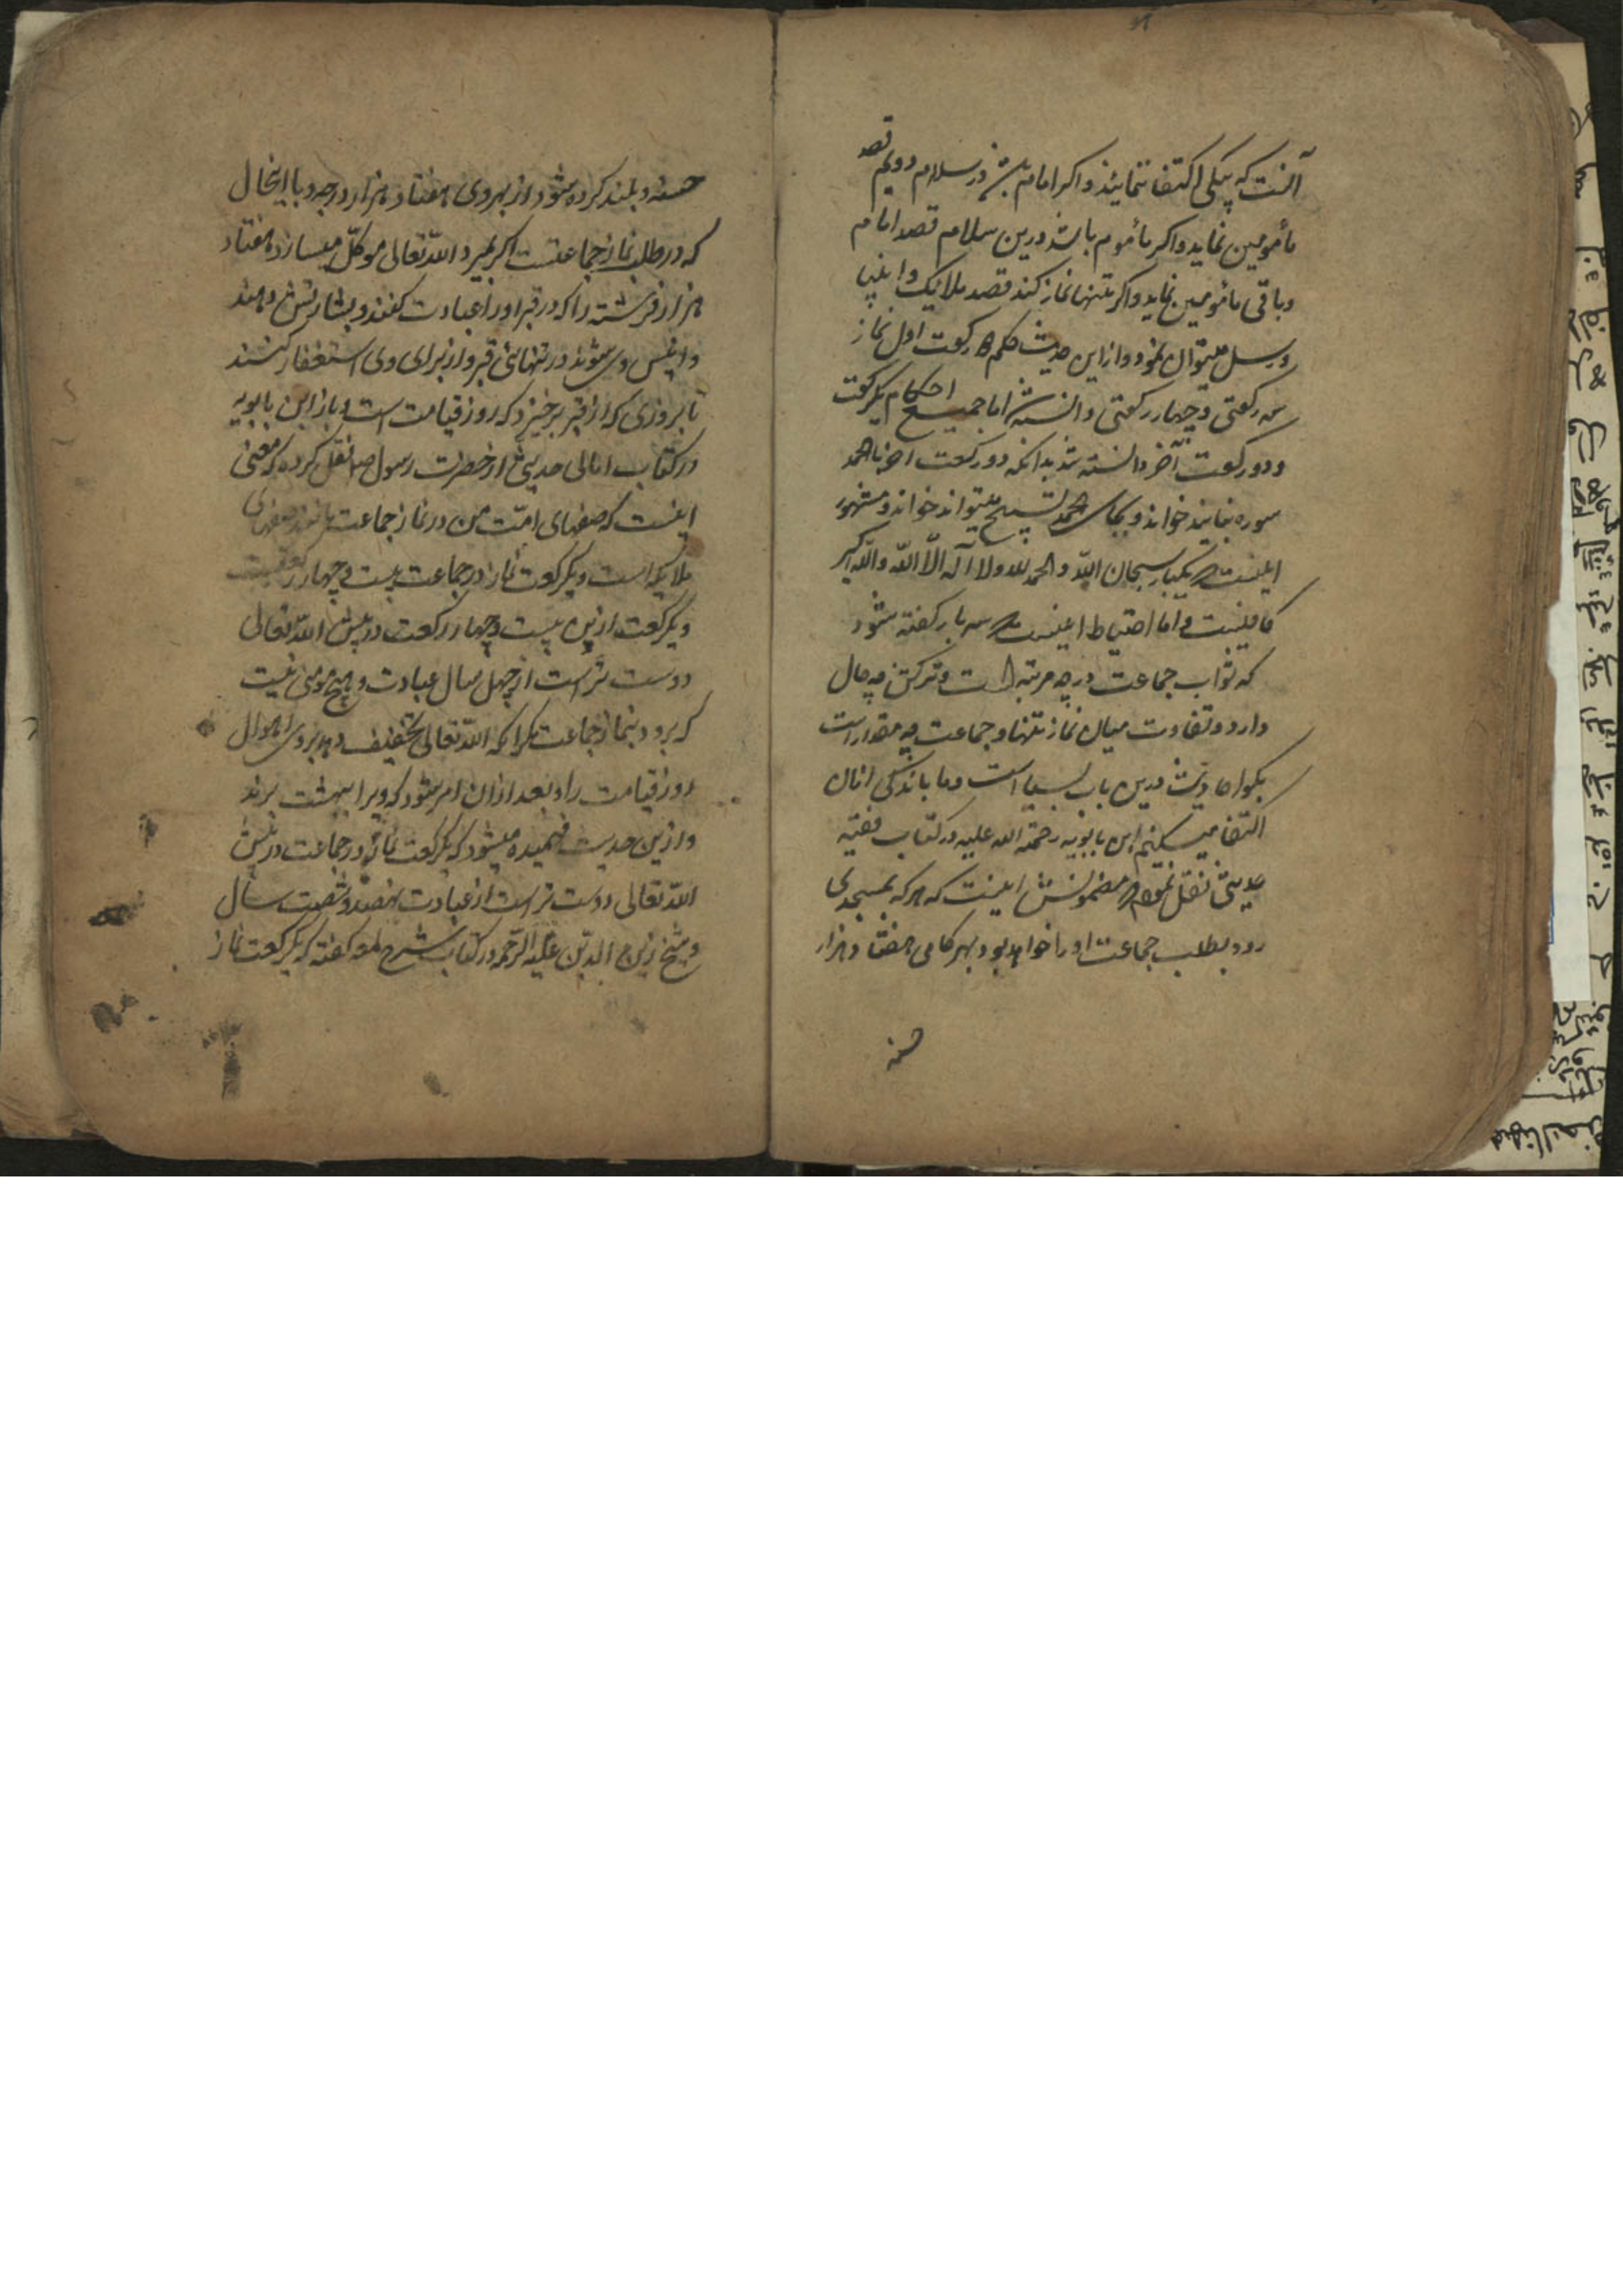 آنست که بیکی اکتفا ننمایند و اکر امام باشد در سلام دویم قصد
مأمومین نماید و اکر مأموم باشد درین سلام قصد امام
و باقی مأمومین نماید و اکر تنها نماز کند قصد ملائیک و انبیا
و رسل میتوان نمود و از این حدیث حکم رکعت اول نماز
سه رکعتی و چهار رکعتی دانسته اما جمیع احکام یکرکعت
و دو رکعت آخر دانسته شد بدانکه دو رکعت آخر با حمد
سوره نباید خواند و بجای حمد تسبیح میتواند خواند و مشهور
اینست که یکبار سبحان الله والحمد لله ولا اله الا الله والله اکبر
کافیست و اما احتیاط اینست که سه بار کفته شود
که ثواب جماعت در چه مرتبه است و ترکش چه حال
دارد و تفاوت میان نماز تنها و جماعت چه مقدار است
بکو احادیث درین باب بسیار است و ما باندکی از ان
اکتفا میکنیم ابن بابویه رحمة الله علیه در کتاب فقیه
حدیثی نقل نموده که مضمونش اینست که هر که بمسجدی
رود بطلب جماعت او را خواهد بود بهر کامی هفتاد هزار
حسنه
حسنه و بلند کرده شود از بهر وی هفتاد هزار درجه و با اینحال
که در طلب نماز جماعتست اکر بمیرد الله تعالی موکل میسازد هفتاد
هزار فرشته را که در قبر او را عیادت کنند و بشارتش دهند
و انیس وی شوند در تنهائی قبر و از برای وی استغفار کنند
تا بروزی که از قبر برخیزد که روز قیامت است و باز ابن بابویه
در کتاب امالی حدیثی از حضرت رسول ص نقل کرده که معنی
اینست که صفهای امت من در نماز جماعت مانند صفهای
ملایکه است و یکرکعت نماز در جماعت بیست و چهار رکعتست
و یکرکعت ازین بیست و چهار رکعت در پیش الله تعالی
دوست تر است از چهل سال عبادت و هیچ مومنی نیست
که برود بنماز جماعت مکر انکه الله تعالی تخفیف دهد بر وی اهوال
روز قیامت را و بعد از ان امر میشود که ویرا ببهشت برند
و ازین حدیث فهمیده میشود که یکرکعت نماز در جماعت در پیش
الله تعالی دوست تر است از عبادت نهصد و شصت سال
و شیخ زین الدین علیه الرحمه در کتاب شرح لمعه کفته که یکرکعت نماز